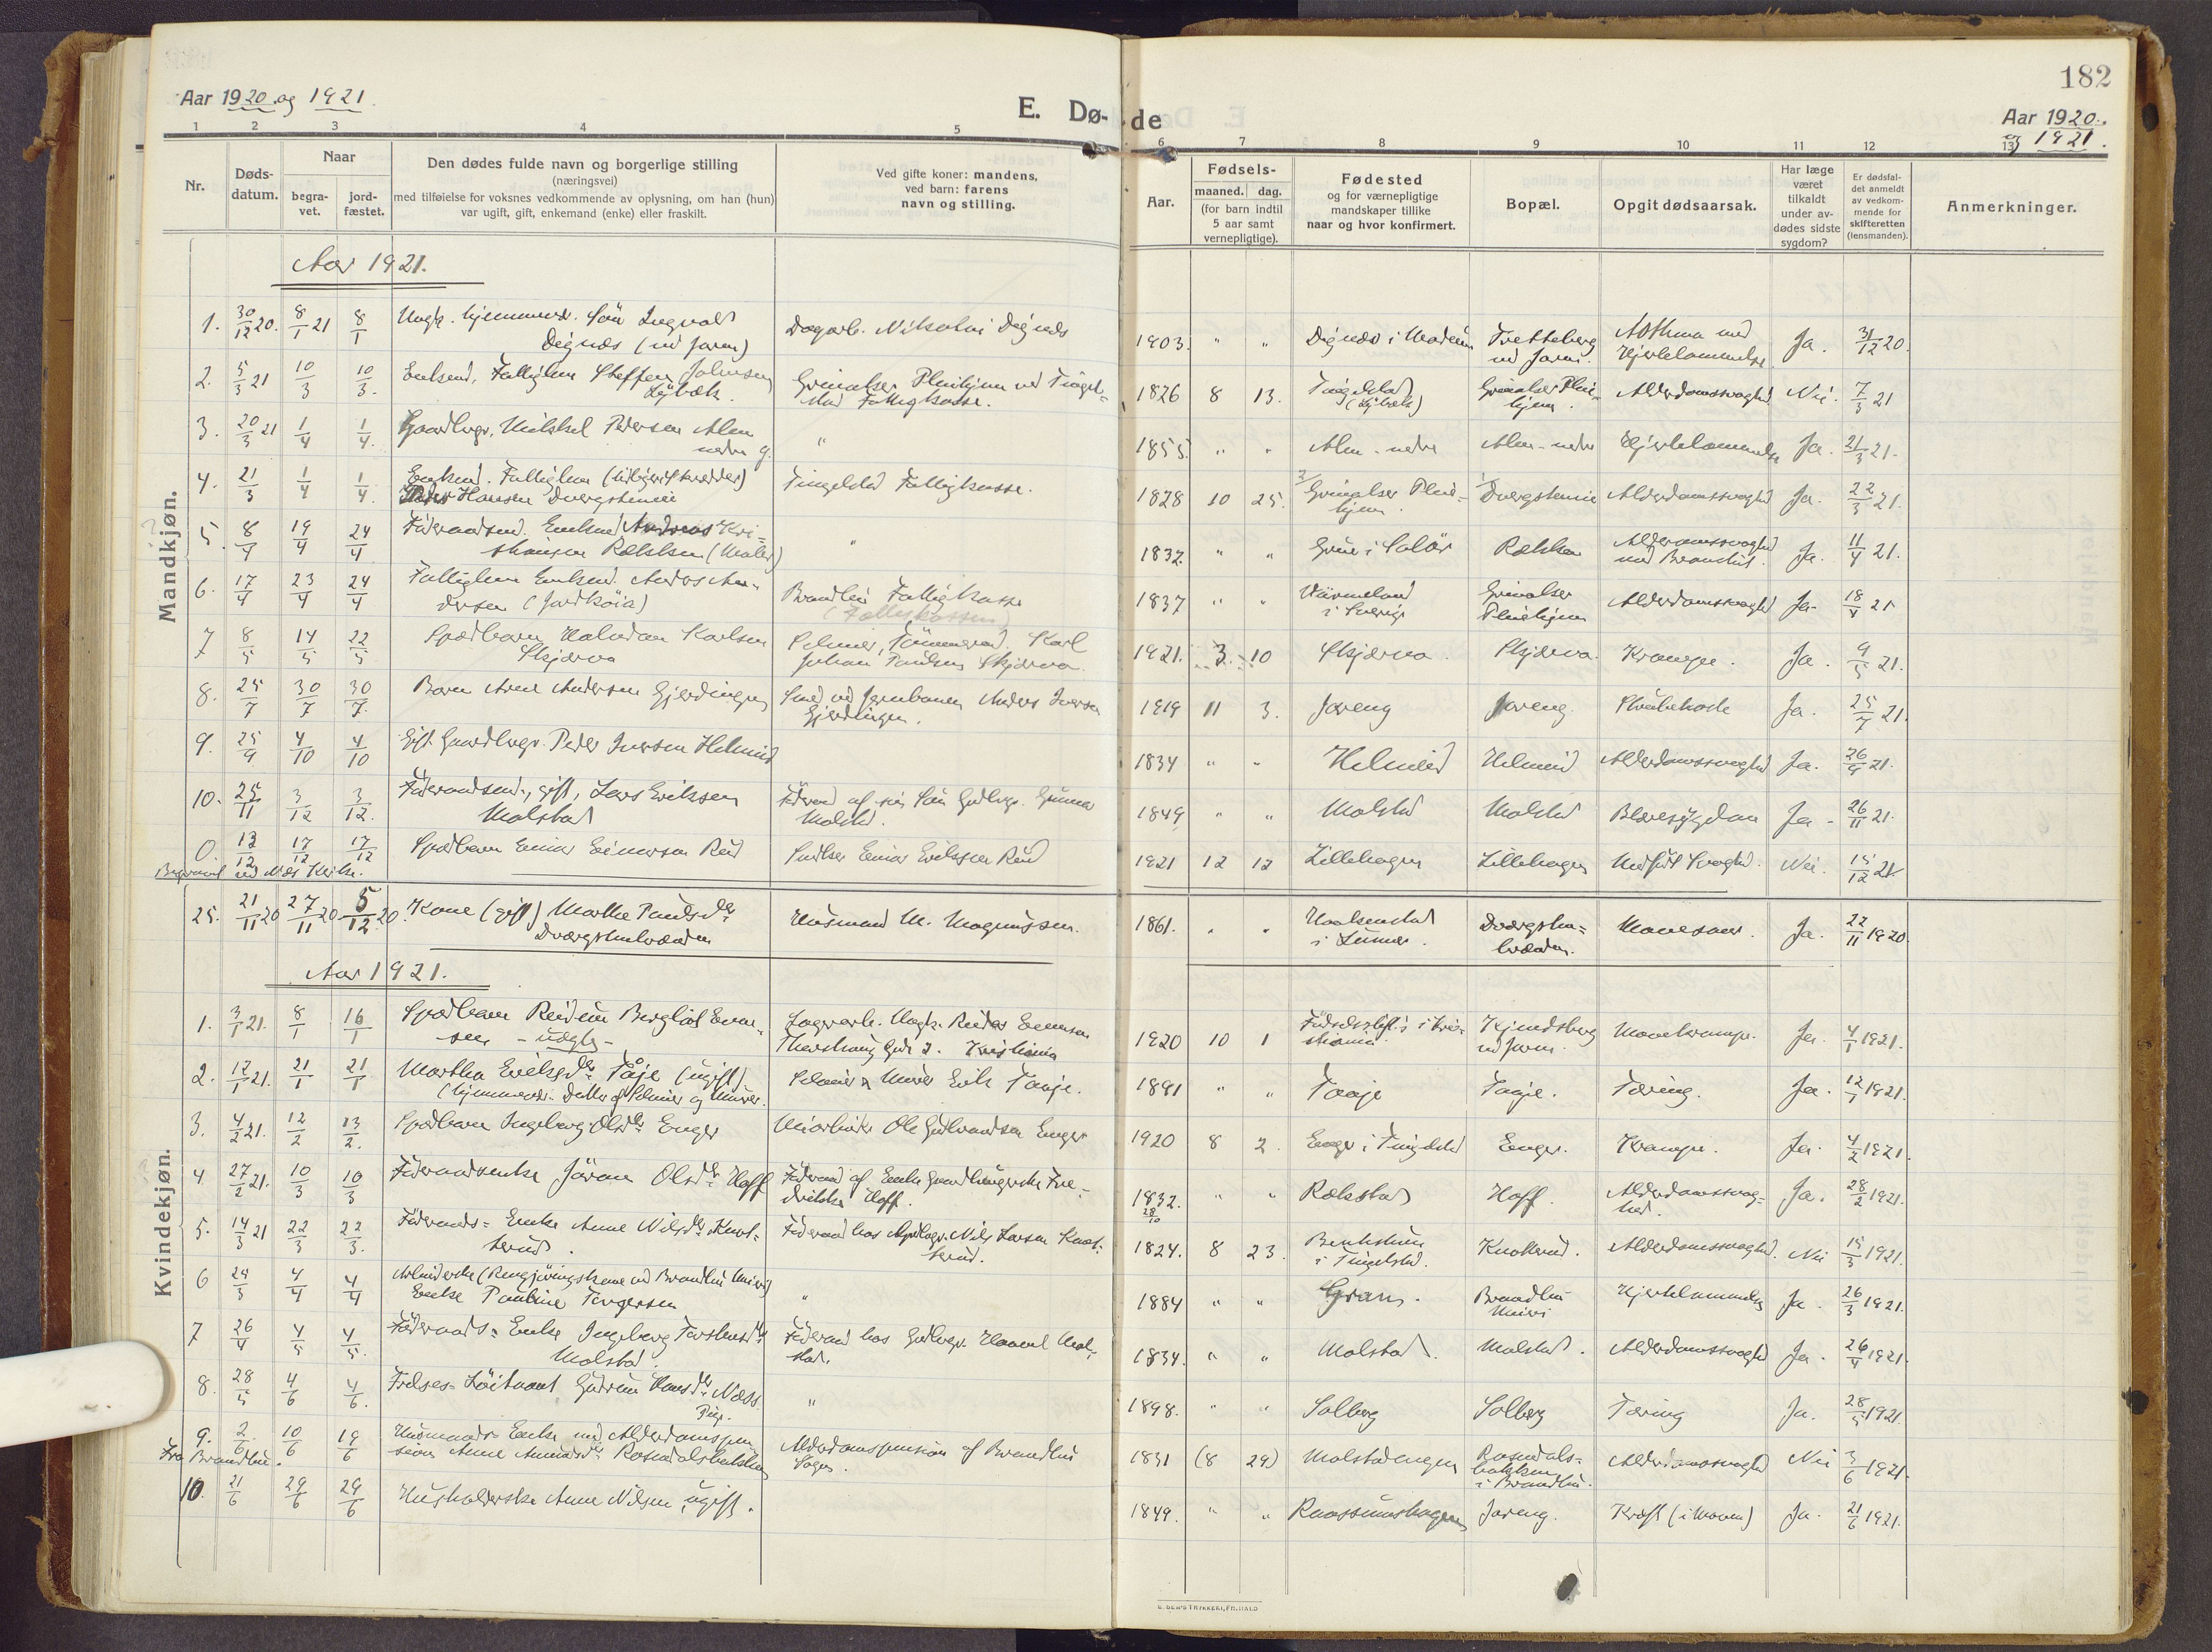 182
Aar 1920 og 1921.
E. Dø-
de
Aar 1920.
og 1921.
1 2 3 4 5 6 7 8 9 10 11 12 13
Nr.
Døds-
datum.
Naar
begra-
vet.
jord-
fæstet.
Den dødes fulde navn og borgerlige stilling
(næringsvei)
med tilføielse for voksnes vedkommende av oplysning, om han (hun)
var ugift, gift, enkemand (enke) eller fraskilt.
Ved gifte koner: mandens,
ved barn: farens
navn og stilling.
Aar.
Fødsels-
maaned. dag.
(for barn indtil
5 aar samt
vernepligtige).
Fødested
og for værnepligtige
mandskaper tillike
naar og hvor konfirmert.
Bopæl.
Opgit dødsaarsak.
Har læge
været
tilkaldt
under av-
dødes sidste
sygdom?
Er dødsfal-
det anmeldt
av vedkom-
mende for
skifteretten
(lensmanden).
Anmerkninger.
Mandkjøn.
Aar 1921.
1. 30/12 20. 8/1 21 8/1 Ungk. hjemmev. Søn Ingvald
Dignæs (ved Jaren)
Dagarb. Nikolai Dignæs
1903. " " Dignæs i Modum Tretteberg
ved Jaren.
Asthma med
Hjertelammelse
Ja. 31/12 20.
2. 5/3 21 10/3 10/3. Enkem. Fattiglem Steffen Johnsen
Lybæk.
Grinaker Pleiehjem ved Tingel-
stad Fattigkasse.
1826 8 13. Tingelstad
(Lybæk)
Grinaker Pleie-
hjem.
Alderdomssvaghed Nei. 7/3 21
3. 20/3 21 1/4 1/4. Gaardbrgr. Mikkel Pedersen Alm
nedre g.
"
1855. " " Alm - nedre Alm - nedre Hjertelammelse Ja. 21/3 21.
4. 21/3 1/4 1/4. Enkem. Fattiglem (tidligere Skrædder)
Peder Hansen Dvergsteneie
Tingelstad Fattigkasse.
1828 10 25. Grinaker Pleie-
hjem.
Dvergsteneie Alderdomssvaghed Ja. 22/3 21.
5. 8/4 19/4 24/4 Føderaadsmd. Enkemd Andreas Kri-
stiansen Rækken (Maler)
"
1832. " " Grue i Solør Rækken Alderdomssvaghed
med Bronchit.
Ja. 11/4 21.
6. 17/4 23/4 24/4 Fattiglem Enkemd. Anders An-
dersen (Jordkøia)
Brandbu Fattigkasse
(Fatteskassen)
1837 " " Värmeland
i Sverige
Grinaker
Pleiehjem
Alderdomssvaghed Ja. 18/4 21
7 8/5 14/5 22/5 Spædbarn Halvdan Karlsen
Skjærva
Selveier, Tømmermd. Karl
Johan Paulsen Skjærva.
1921. 3. 10 Skjærva. Skjærva. Krampe. Ja. 9/5 21.
8. 25/7 30/7 30/7. Barn Arne Andersen Gjerdingen
Smed ved Jernbanen Anders Iversen
Gjerdingen.
1919 11 3. Jareng Jareng. Strubehoste Ja. 25/7 21.
9. 25/9 4/10 4/10 Gift Gaardbrgr. Peder Iversen Helmeid
1834 " " Helmeid Helmeid Alderdomssvaghed Ja. 26/9 21.
10. 25/11 3/12 3/12. Føderaadsmd., gift, Lars Eriksen
Molstad
Føderaad af sin Søn Gdbrgr. Gunnar
Molstad.
1849 " " Molstad Molstad Blæresygdom Ja. 26/11 21.
0 13/12 17/12 17/12 Spædbarn Einar Einarsen Rud
Snedker Einar Eriksen Rud
1921 12 12 Lillehagen Lillehagen Medfødt Svaghed. Nei. 15/12 21.
Begravet ved Næs Kirke.
25. 21/11 20 27/11 20 5/12 20. Kone (gift) Marthe Paulsdr
Dværgstenbraaten
Husmand M. Magnussen.
1861. " " Haakenstad
i Lunner.
Dværgsten-
braaten.
Mavesaar. Ja. 22/11 1920.
Kvindekjøn.
Aar 1921.
1. 3/1 21. 8/1 16/1 Spædbarn Reidun Bergliot Evan-
sen - udgbr -
1920 10 1 Fødselsstift. i Kri-
stiania.
Kjendsberg
ved Jaren.
Mavekrampe. Ja. 4/1 1921.
2. 12/1 21. 21/1 21/1 Martha Eriksdr. Tåje (ugift)
(hjemmev. Datter af Selveier og Murer.
Selveier & Murer Erik Taaje.
1891 " " Taaje Taaje. Tæring. Ja. 12/1 1921.
3. 4/2 21. 12/2 13/2. Spædbarn Ingeborg Olsdr Enger
Ole Gulbrandsen Enger
1920 8 2. Enger i Tingelstad Enger. Krampe. Ja. 4/2 1921.
4 27/2 21. 10/3 10/3 Føderaadsenke Jøran Olsdr. Hoff
Føderaad af Enke Gaardbrugerske Fre-
drikke Hoff.
1832. 28/10 " " Rækstad Hoff. Alderdomssvag-
hed.
Ja. 28/2 1921.
5. 14/3 21 22/3 22/3. Føderaads-Enke Anne Nilsdr. Knat-
terud.
Føderaad hos Gdbrgr. Nils Larsen Knat-
terud.
1824. 8 23. Benkstuen
i Tingelstad.
Knatterud. Alderdomssvaghed. Nei 15/3 1921.
6 24/3 4/4 4/4 Arbeiderske (Rengjøringskone ved Brandbu Meieri)
Enke Pauline Torgersen
"
1884 " " Gran. Brandbu
Meieri
Hjertelammelse Ja. 26/3 1921.
7 26/4 4/5 4/5. Føderaads-Enke Ingeborg Torstensdr.
Molstad.
Føderaad hos Gdbrgr. Haavel Mol-
stad.
1834. " " Molstad. Molstad. Alderdomssvaghed Ja. 26/4 1921.
8. 28/5 4/6 4/6. Frelses-Løitnant Gudrun Hansdr. Næss
Pige.
"
1898. " " Solberg Solberg Tæring Ja. 28/5 1921.
9. 2/6 10/6 19/6 Husmands-Enke med Alderdomspen-
sion Anne Amundsdr. Rosendalsbakken
Alderdomspension af Brandbu
Sogn.
1831 (8 29) Molstadengen Rosendals-
bakken
i Brandbu.
Alderdomssvaghed Nei 3/6 1921.
Fra Brandbu.
10. 21/6 29/6 29/6 Husholderske Anne Nilsen, ugift.
1849. " " Raassumshagen Jareng. Kræft (i Maven) Ja. 21/6 1921.